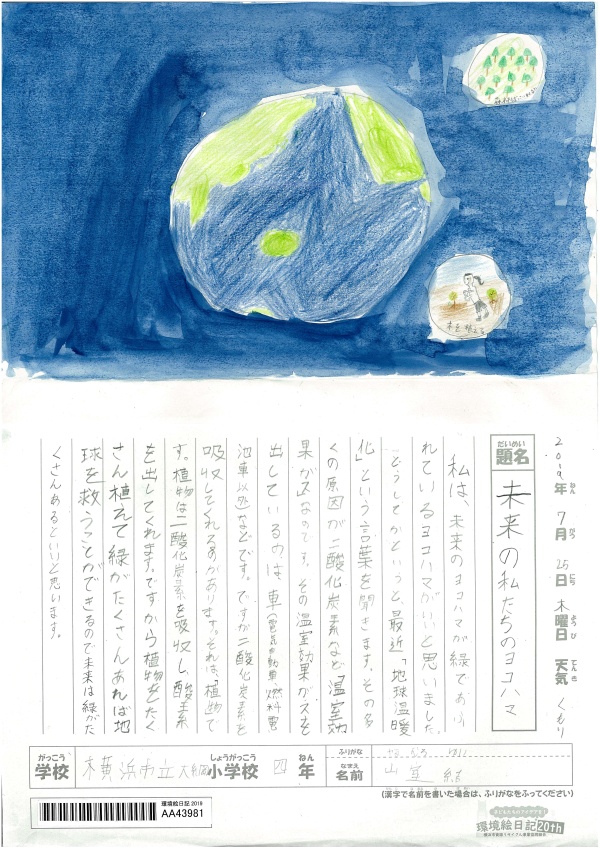 2019年 7月 25日 木曜日 天気 くもり
ねん がつ にち よう び てん き
だいめい
題名 未来の私たちのヨコハマ
私は、未来のヨコハマが緑であふ
れているヨコハマがいいと思いました。
どうしてかというと、最近、「地球温暖
化」という言葉を聞きます。その多
くの原因が二酸化炭素など「温室効
果ガス」なのです。その温室効果ガスを
出しているのは、車(電気自動車、燃料電
池車以外)などです。ですが二酸化炭素を
吸収してくれるものがあります。それは、「植物で
す。植物は二酸化炭素を吸収し、酸素
を出してくれます。ですから植物をたく
さん植えて緑がたくさんあれば地
球を救うことができるので未来は緑がた
くさんあるといいと思います。
木を植える
がっこう しょうがっこう ねん
学校 横浜市立大綱小学校 四年
ふりがな
なまえ
名前 結
(漢字で名前を書いた場合は、ふりがなをふってください)
環境絵日記 2019
AA43981
環境絵日記 20th